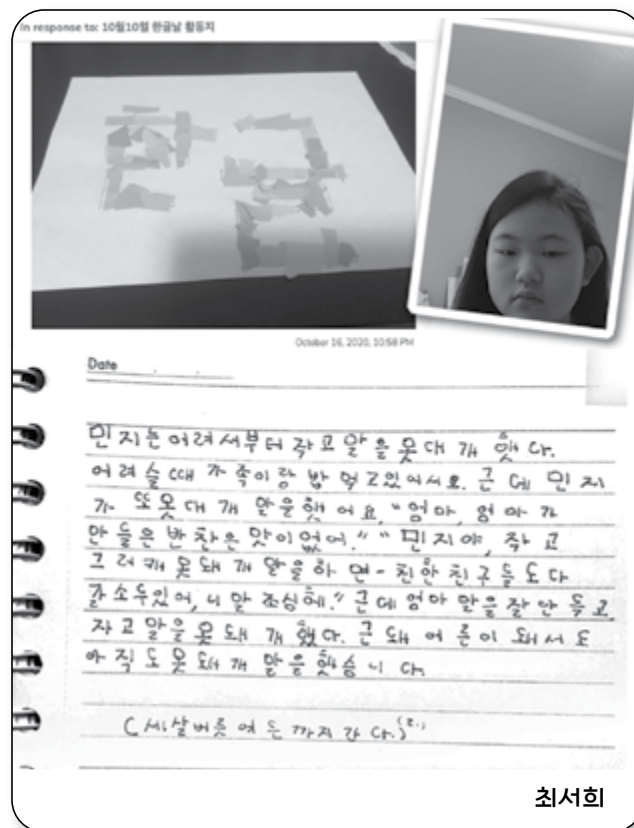 in response to: 10월10일 한글날 활동지
한글
October 16, 2020, 10:58 PM
Date
민지는 어려서부터 작고 말을 못대 개 했다.
어려슬때 가족이랑 밥 먹고있어서요. 근데 민지
가 또못대개 말을했어요. "엄마, 엄마가
만들은 반찬은 맛이없어." "민지야, 작고
그러케 못돼개 말을하면 친한 친구들도다
갈소두있어, 니 말 조심헤." 근데엄마 말을잘안 듣고,
자고 말을 못 돼 개 했다. 근 돼 어른이 돼서도
아직도 못돼개 말을 했습니다.
(세살버릇 여든까지 간다.)
최서희